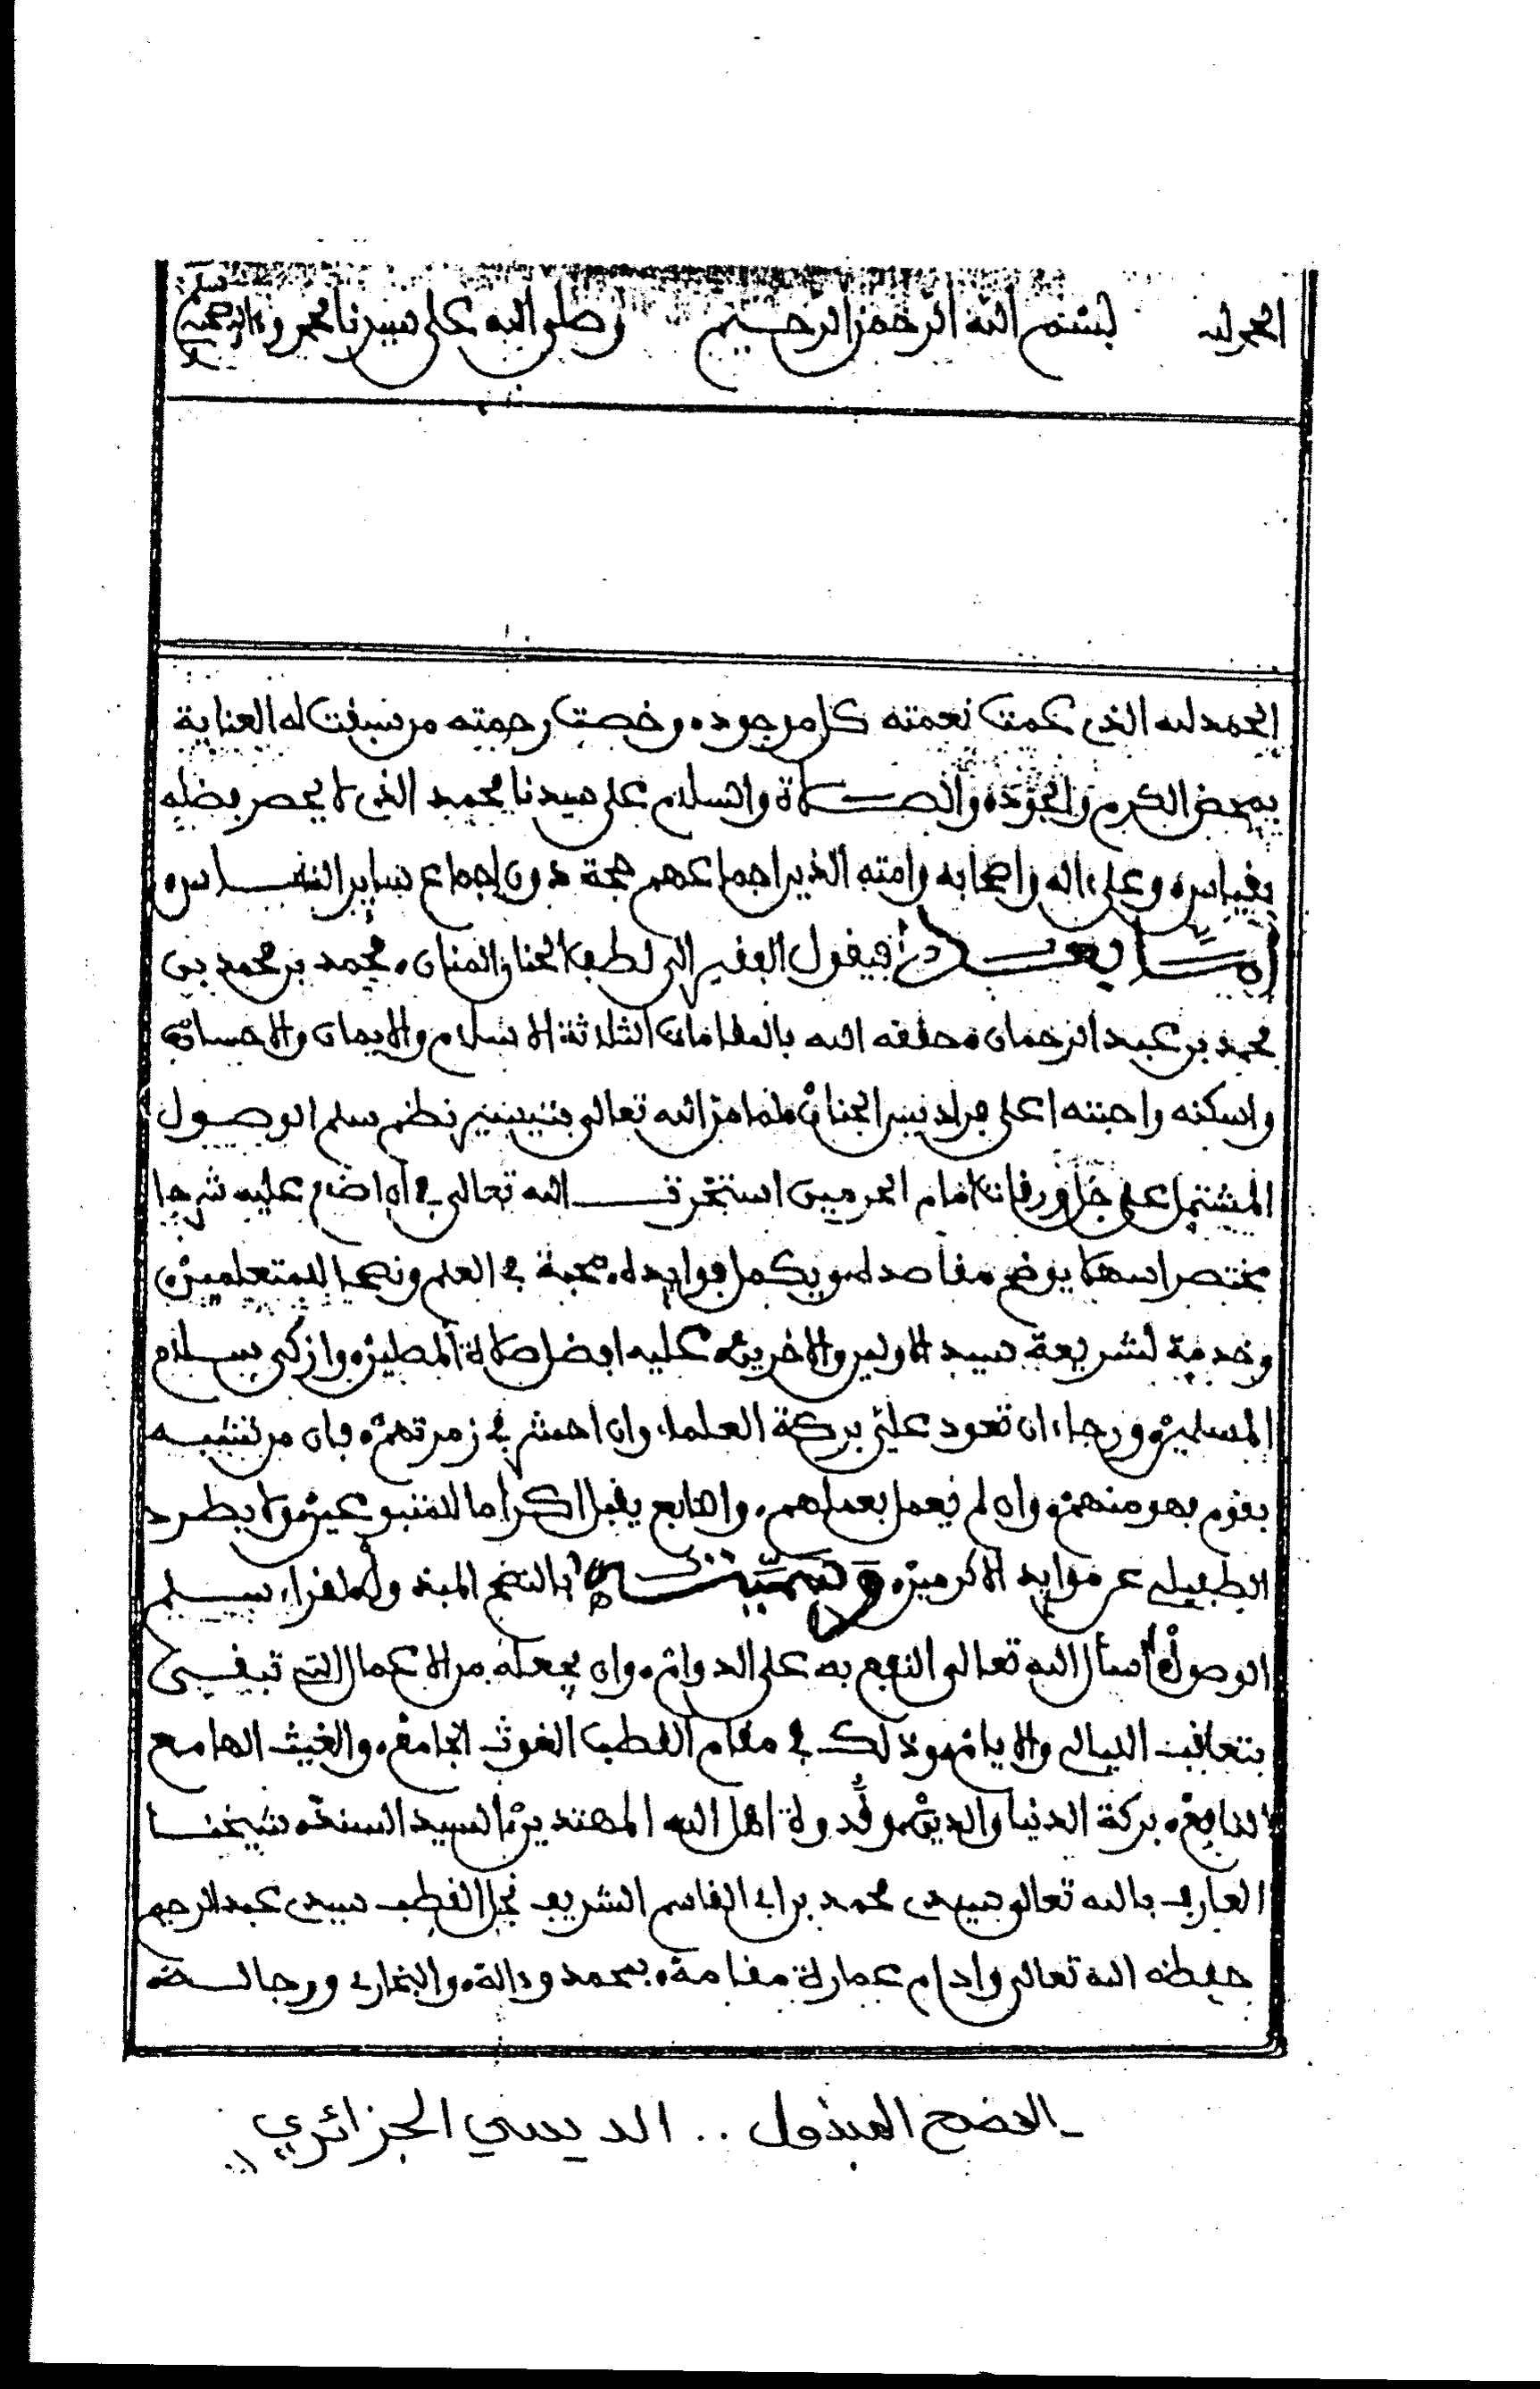 الحمد لله بسم الله الرحمن الرحيم وصلى الله على سيدنا محمد وءاله وصحبه وسلم
الحمد لله الذى عمت نعمته كل موجود، وخصت رحمته من سبقت له العناية
بمحض الكرم والجود، والصلاة والسلام على سيدنا محمد الذى لا يحصر فضله
بقياس، وعلى ءاله واصحابه وامته الذين اجماعهم حجة دون اجماع ساير الناس،
اما بعد فيقول الفقير الى لطف الحنان المنان، محمد بن محمد بن
محمد بن عبد الرحمان، حققه الله بالمقامات الثلاثة الاسلام والايمان والاحسان،
واسكنه واحبته اعلى فراديس الجنان، لما من الله تعالى بتبييض نظم سلم الوصول
المشتمل على جل ورقات امام الحرمين استخرت الله تعالى فى ان اضع عليه شرحا
مختصرا سهلا يوضح مقاصده، ويكمل فوايده، محبة فى العلم ونصحا للمتعلمين،
وخدمة لشريعة سيد الاولين والاخرين، عليه افضل صلاة المصلين، وازكى سلام
المسلمين، ورجاء ان تعود علي بركة العلماء، وان احشر فى زمرتهم، فان من تشبه
بقوم فهو منهم، وان لم يعمل بعملهم، والتابع يقبل اكراما للمتبوعين، ولا يطرد
الطفيلى عن موايد الاكرمين، وسميته بالنصح المبذول لقراء سلم
الوصول، أسأل الله تعالى النفع به على الدوام، وان يجعله من الاعمال التى تبقى
بتعاقب الليالى والايام، وذلك فى مقام القطب الغوث الجامع، والغيث الهامع
النافع، بركة الدنيا والدين، وقدوة اهل الله المهتدين، السيد السند، شيخنا
العارف بالله تعالى سيدى محمد بن ابى القاسم الشريف نجل القطب سيدى عبد الرحيم
حفظه الله تعالى وادام عمارة مقامه، بمحمد وءاله، والبخارى ورجاله،
ـ النصح المبذول .. الديسي الجزائري